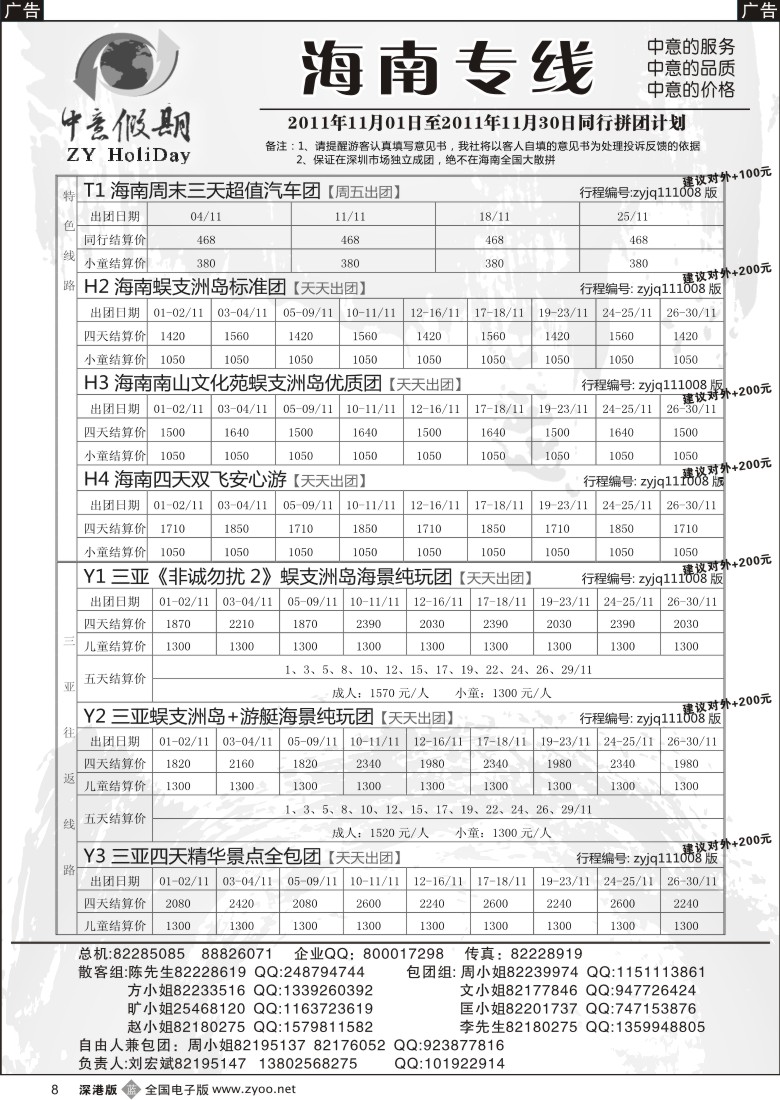 广告
广告
中意假期
ZY HoliDay
海南专线
中意的服务
中意的品质
中意的价格
2011年11月01日至2011年11月30日同行拼团计划
备注：1、请提醒游客认真填写意见书，我社将以客人自填的意见书为处理投诉反馈的依据
2、保证在深圳市场独立成团，绝不在海南全国大散拼
特色线路
建议对外+100元
T1 海南周末三天超值汽车团【周五出团】 行程编号:zyjq111008 版
出团日期 04/11 11/11 18/11 25/11
同行结算价 468 468 468 468
小童结算价 380 380 380 380
建议对外+200元
H2 海南蜈支洲岛标准团【天天出团】 行程编号: zyjq111008 版
出团日期 01-02/11 03-04/11 05-09/11 10-11/11 12-16/11 17-18/11 19-23/11 24-25/11 26-30/11
四天结算价 1420 1560 1420 1560 1420 1560 1420 1560 1420
小童结算价 1050 1050 1050 1050 1050 1050 1050 1050 1050
H3 海南南山文化苑蜈支洲岛优质团【天天出团】 行程编号: zyjq111008 版
建议对外+200元
出团日期 01-02/11 03-04/11 05-09/11 10-11/11 12-16/11 17-18/11 19-23/11 24-25/11 26-30/11
四天结算价 1500 1640 1500 1640 1500 1640 1500 1640 1500
小童结算价 1050 1050 1050 1050 1050 1050 1050 1050 1050
建议对外+200元
H4 海南四天双飞安心游【天天出团】 行程编号: zyjq111008 版
出团日期 01-02/11 03-04/11 05-09/11 10-11/11 12-16/11 17-18/11 19-23/11 24-25/11 26-30/11
四天结算价 1710 1850 1710 1850 1710 1850 1710 1850 1710
小童结算价 1050 1050 1050 1050 1050 1050 1050 1050 1050
三亚往返线路
建议对外+200元
Y1 三亚《非诚勿扰 2》蜈支洲岛海景纯玩团【天天出团】 行程编号: zyjq111008 版
出团日期 01-02/11 03-04/11 05-09/11 10-11/11 12-16/11 17-18/11 19-23/11 24-25/11 26-30/11
四天结算价 1870 2210 1870 2390 2030 2390 2030 2390 2030
儿童结算价 1300 1300 1300 1300 1300 1300 1300 1300 1300
五天结算价 1、3、5、8、10、12、15、17、19、22、24、26、29/11
成人：1570 元/人 小童：1300 元/人
建议对外+200元
Y2 三亚蜈支洲岛+游艇海景纯玩团【天天出团】 行程编号: zyjq111008 版
出团日期 01-02/11 03-04/11 05-09/11 10-11/11 12-16/11 17-18/11 19-23/11 24-25/11 26-30/11
四天结算价 1820 2160 1820 2340 1980 2340 1980 2340 1980
儿童结算价 1300 1300 1300 1300 1300 1300 1300 1300 1300
五天结算价 1、3、5、8、10、12、15、17、19、22、24、26、29/11
成人：1520 元/人 小童：1300 元/人
建议对外+200元
Y3 三亚四天精华景点全包团【天天出团】 行程编号: zyjq111008 版
出团日期 01-02/11 03-04/11 05-09/11 10-11/11 12-16/11 17-18/11 19-23/11 24-25/11 26-30/11
四天结算价 2080 2420 2080 2600 2240 2600 2240 2600 2240
儿童结算价 1300 1300 1300 1300 1300 1300 1300 1300 1300
总机:82285085 88826071 企业QQ：800017298 传真：82228919
散客组:陈先生82228619 QQ:248794744 包团组: 周小姐82239974 QQ:1151113861
方小姐82233516 QQ:1339260392 文小姐82177846 QQ:947726424
旷小姐25468120 QQ:1163723619 匡小姐82201737 QQ:747153876
赵小姐82180275 QQ:1579811582 李先生82180275 QQ:1359948805
自由人兼包团：周小姐82195137 82176052 QQ:923877816
负责人:刘宏斌82195147 13802568275 QQ:101922914
8 深港版 蓝 全国电子版 www.zyoo.net